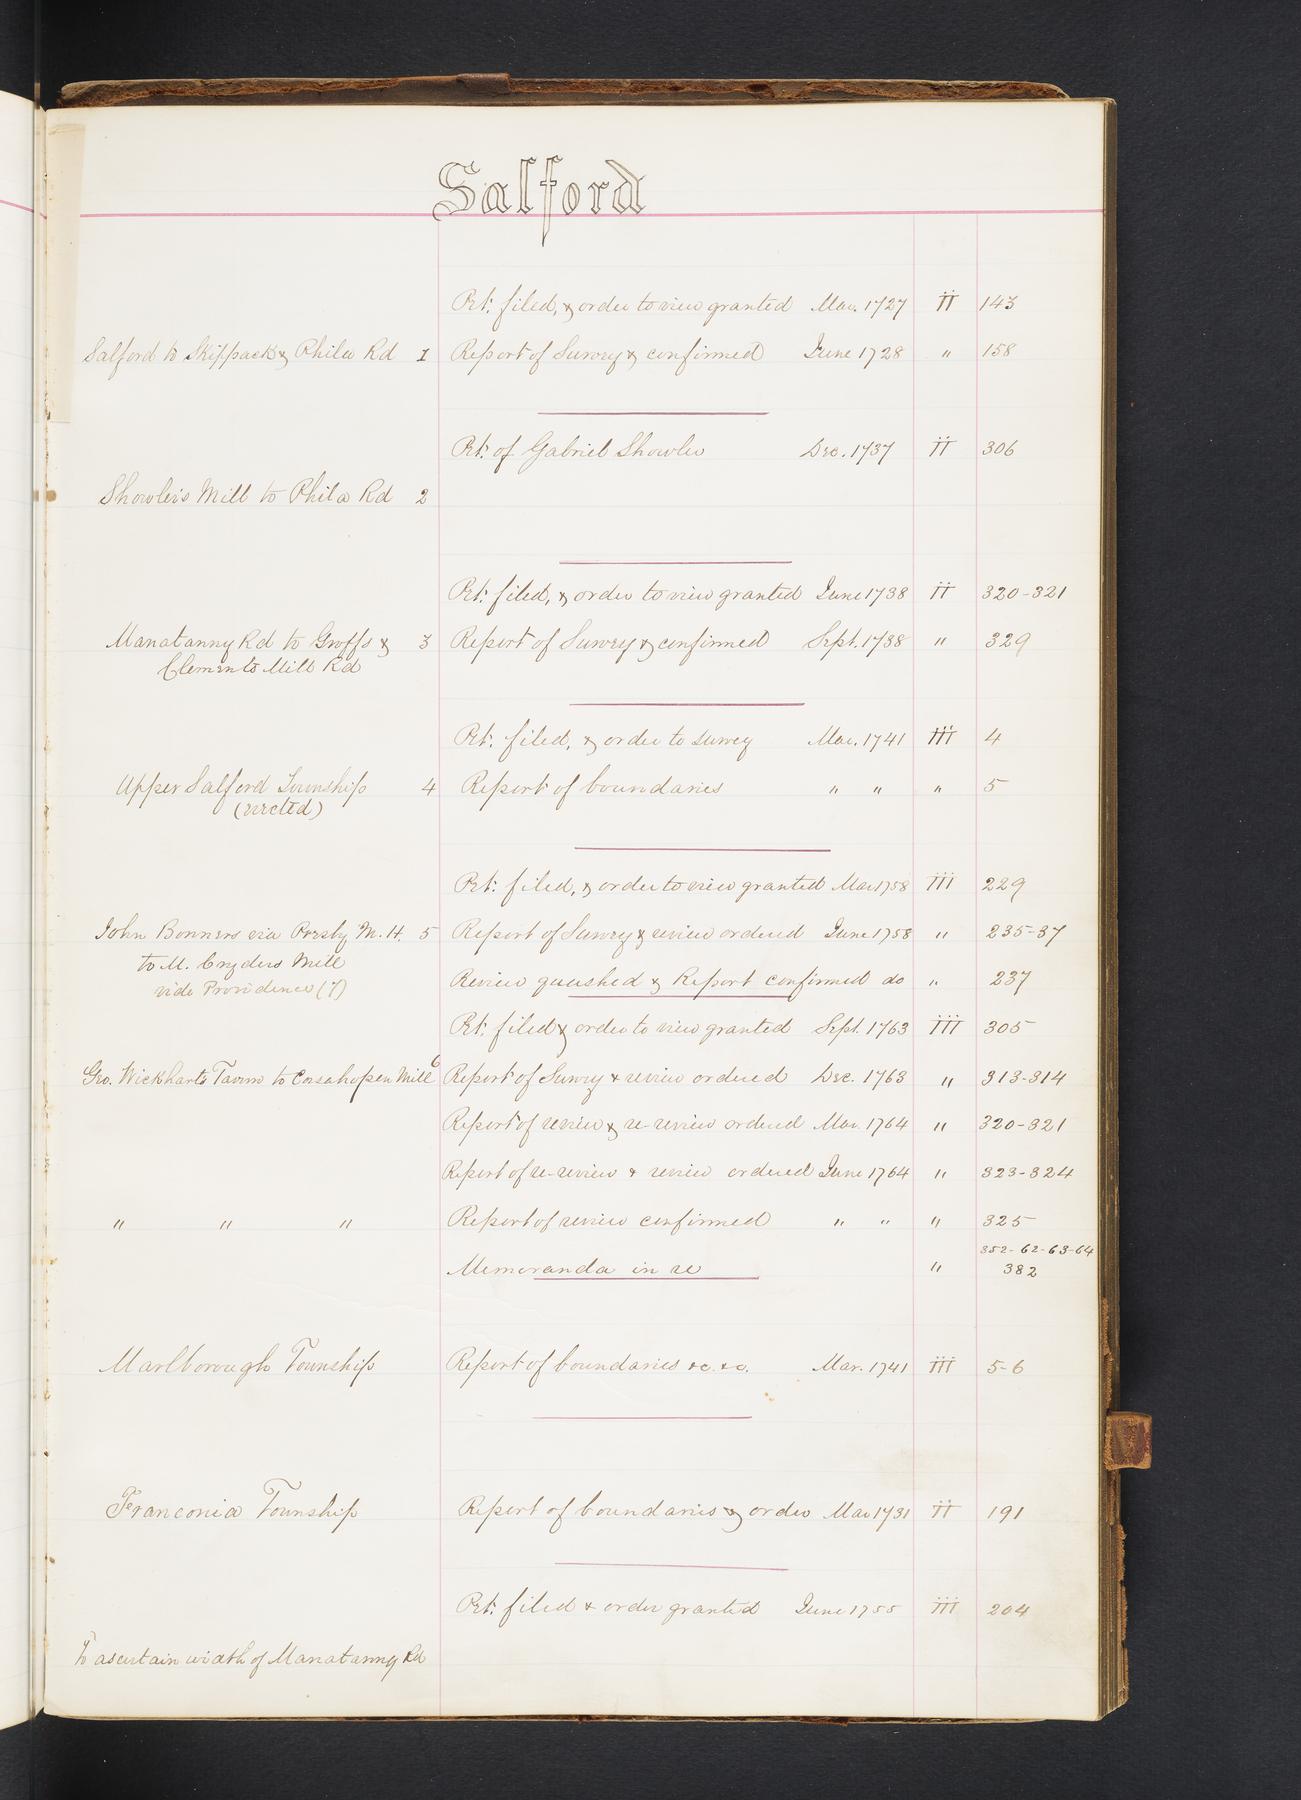 Salford
Pet: filed, & order to view granted Mar. 1727 II 143
Salford to Skippack & Phila Rd 1 Report of Survey & confirmed June 1728 " 158
Pet: of Gabriel Showler Dec. 1737 II 306
Showler's Mill to Phila Rd 2
Pet: filed, & order to view granted June 1738 II 320-321
Manatanny Rd to Groffs & 3 Report of Survey & confirmed Sept. 1738 " 329
Clements Mill Rd
Pet: filed, & order to survey Mar. 1741 III 4
Upper Salford Township 4 Report of boundaries " " " 5
(erected)
Pet: filed, & order to view granted Mar 1758 III 229
John Bonners via Presby M. H. 5 Report of Survey & review ordered June 1758 " 235-37
to M. Cryders Mill
Review quashed & Report confirmed do " 237
vide Providence (7)
Pet: filed & order to view granted Sept. 1763 III 305
Geo. Wickharts Tavern to Mill 6 Report of Survey & review ordered Dec. 1763 " 313-314
Report of review & re-review ordered Mar. 1764 " 320-321
Report of re-review & review ordered June 1764 " 323-324
" " " Report of review confirmed " " " 325
352-62-63-64
Memoranda in re " 382
Marlborough Township Report of boundaries &c. &c. Mar. 1741 III 5-6
Franconia Township Report of boundaries & order Mar 1731 II 191
Pet: filed & order granted June 1755 III 204
To ascertain width of Manatanny Rd